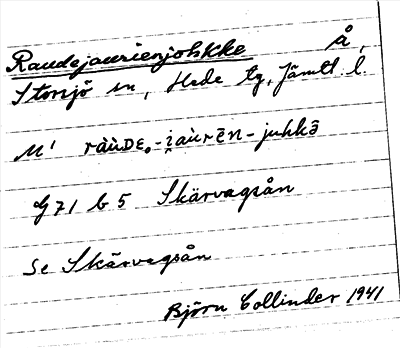 Raudejaurienjohkke å,
Storsjö sn, Hede tg, Jämtl. l.
M' ràùDE₀-i̯aùrēn-juhkə̄
G 71 b 5 Skärvagsån
Se Skärvagsån
Björn Collinder 1941